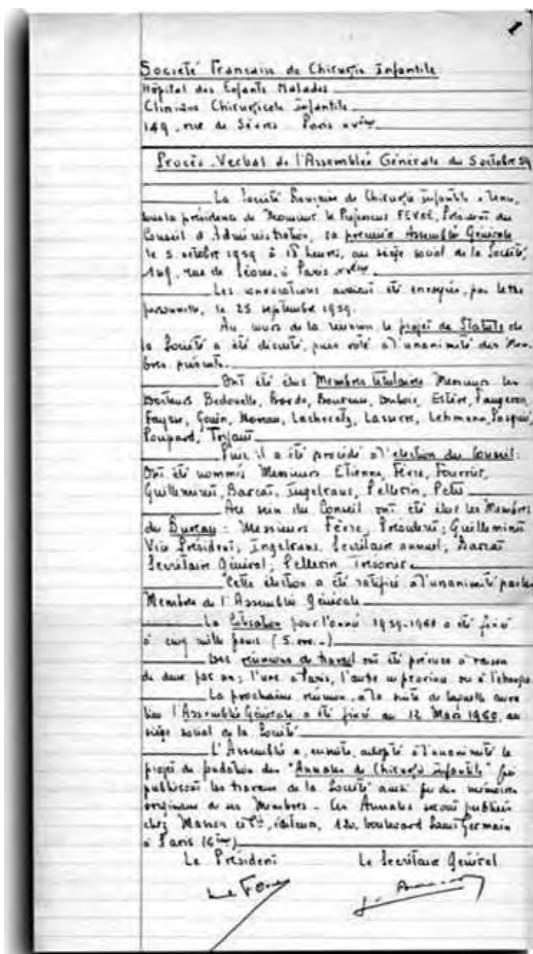 1
Société Française de Chirurgie Infantile
Hôpital des Enfants Malades
Clinique Chirurgicale Infantile
149, rue de Sèvres Paris XVème
Procès-Verbal de l'Assemblée Générale du 5 octobre 59
La Société Française de Chirurgie infantile a tenu,
sous la présidence de Monsieur le Professeur FEVRE, Président du
Conseil d'Administration, sa première Assemblée Générale
le 5 octobre 1959 à 15 heures, au siège social de la Société,
149, rue de Sèvres, à Paris XVème
Les convocations avaient été envoyées, par lettre
personnelle, le 25 septembre 1959.
Au cours de la réunion, le projet de Statuts de
la Société a été discuté, puis voté à l'unanimité des Mem-
bres présents.
Ont été élus Membres titulaires Messieurs les
Docteurs Bedouelle, Borde, Boureau, Dubois, Estève, Faugeron,
Faysse, Gouin, Lacheretz, Lasserre, Lehmann, Pasquié,
Poupard, Trifaut
Puis il a été procédé à l'élection du Conseil:
Ont été nommés Messieurs Etienne, Fèvre, Fourrier,
Guilleminet, Barcat, Ingelrans, Pellerin, Petit
Au sein du Conseil ont été élus les Membres
du Bureau: Messieurs Fèvre, Président; Guilleminet
Vice Président; Ingelrans, Secrétaire annuel; Barcat
Secrétaire Général; Pellerin Trésorier
Cette élection a été ratifiée à l'unanimité par les
Membres de l'Assemblée Générale
La Cotisation pour l'année 1959-1960 a été fixée
à cinq mille francs (5.000.-)
Des réunions de travail ont été prévues à raison
de deux par an; l'une à Paris, l'autre en province ou à l'étranger
La prochaine réunion, à la suite de laquelle aura
lieu l'Assemblée Générale a été fixée au 12 Mars 1960, au
siège social de la Société
L'Assemblée a, ensuite, adopté à l'unanimité le
projet de fondation des "Annales de Chirurgie Infantile" qui
publieront les travaux de la Société ainsi que des mémoires
originaux de ses Membres. Ces Annales seront publiées
chez Masson et Cie, éditeur, 120, boulevard Saint Germain
à Paris (6ème)
Le Président Le Secrétaire Général